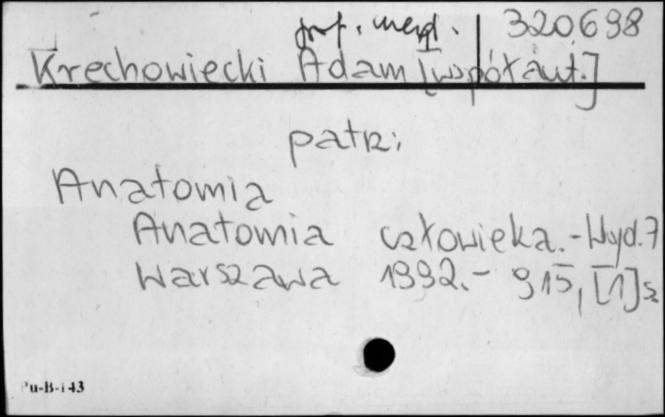 prof. med. 320698
Krechowiecki Adam [współaut.]
patrz:
Anatomia
Anatomia człowieka.- Wyd. 7
Warszawa 1992.- 915, [1] s.
Pu-B-143